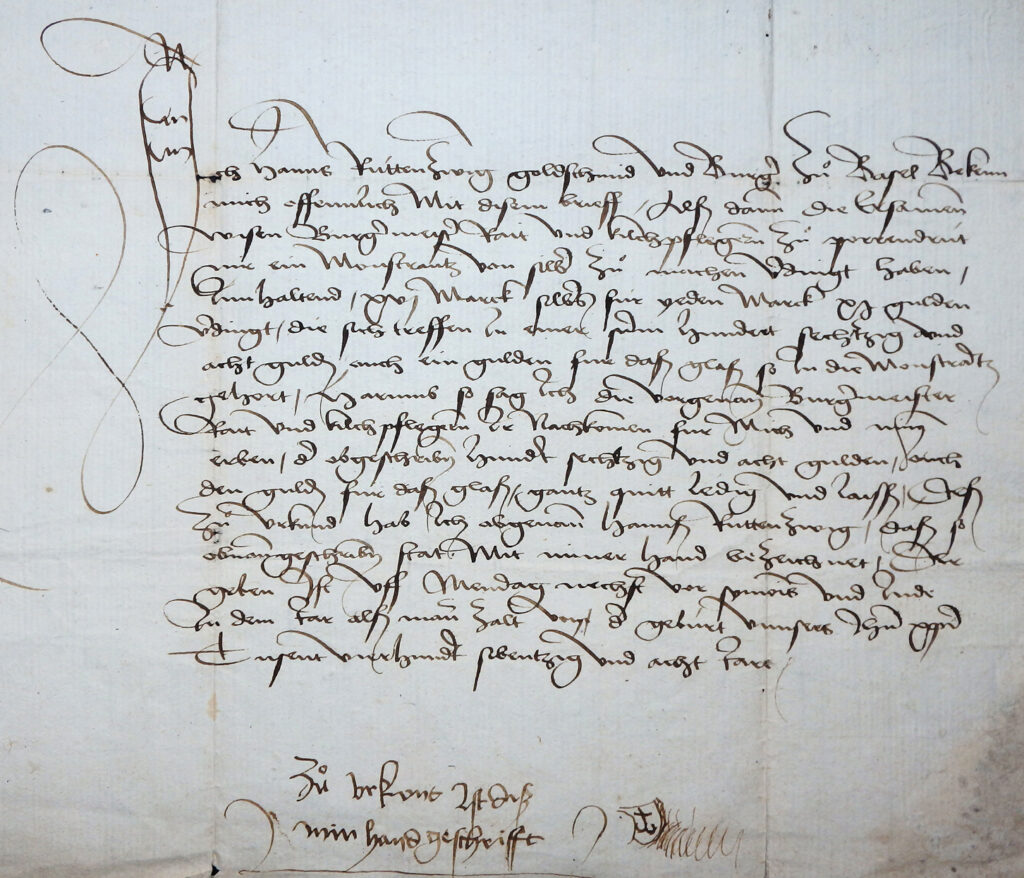 Ich Hanns Rutten Zwig goldschmid und Burger Zů Basel Bekenn
mich offennlich Mit disem brieff / Alß dann die Ersamen
wisen Burgermeister Rait und kilchpflegern Zů porrendrut
mir ein Monstrantz von silber Zů machen verdingt haben /
Innhaltend / xvj Marck silbers für yeden Marck xj gulden
verdingt / die sich treffen In einer sum hundert sechtzig und
acht gulden / auch ein gulden fur daß glaß so In die Monstrantz
gehort / Harumb so sag Ich die vorgenanten Burgermeister
Rait und kilchpflegern Ir Nachkomen fur Mich und min
erben / der obgeschriben hundert sechtzig und acht gulden / ouch
den gulden fur daß glaß / gantz quitt ledig und
Zů urkund hab Ich obgenant Hannß Rutten Zwig / daß so
obnangeschriben stat Mit miner hand bezeichnet / Der
geben Ist uff Mendag nechst vor symons und Jude
In dem Iar alß man Zalt von der geburt unnsers hern
Tusent vierhundert sibentzig und acht Iare
Zů urkont Ist diß
min handgeschrifft